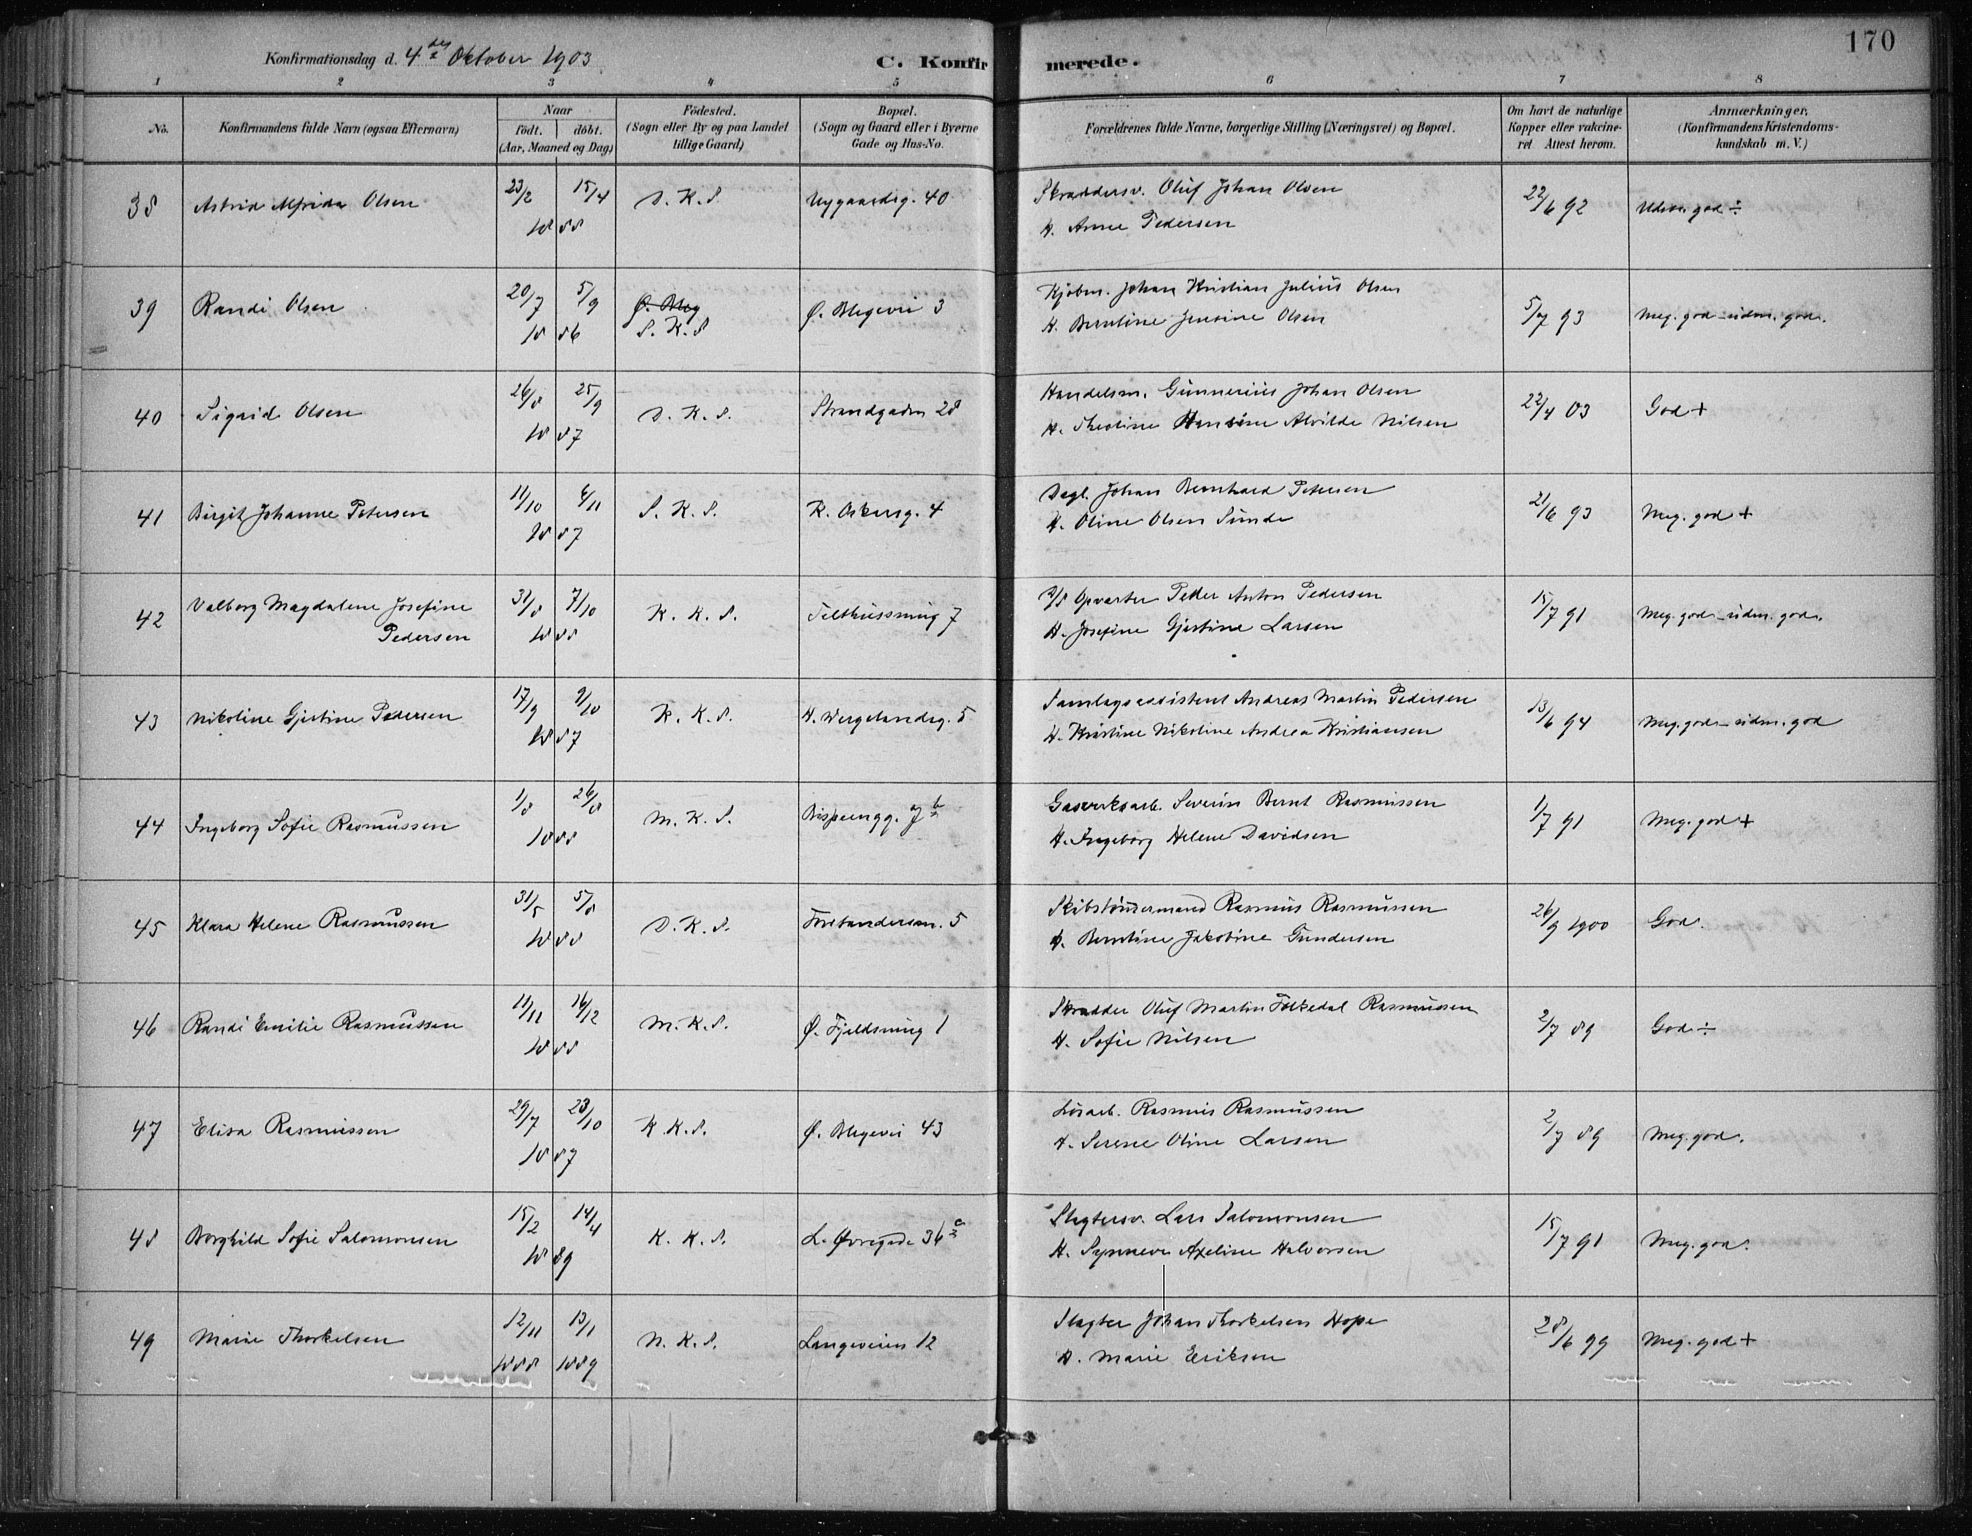 170
Konfirmationsdag d. 4des Oktober 1903
C. Konfirmerede.
1 2 3 4 5 6 7 8
No. | Konfirmandens fulde Navn (ogsaa Efternavn) | Naar født. døbt. (Aar, Maaned og Dag) | Fødested. (Sogn eller By og paa Landet tillige Gaard) | Bopæl. (Sogn og Gaard eller i Byerne Gade og Hus-No. | Forældrenes fulde Navne, borgerlige Stilling (Næringsvei) og Bopæl. | Om havt de naturlige Kopper eller vakcineret Attest herom. | Anmærkninger, (Konfirmandens Kristendomskundskab m. V.)
38 Astrid Alfrida Olsen 23/2 15/4 1888 D. K. S Nygaardsg. 40 Skræddersv. Oluf Johan Olsen 22/6 92 Udm. god ÷
H. Anne Pedersen
39 Randi Olsen 20/7 5/9 1886 Ø. Bleg S. K. S Ø. Blegevei 3 Kjøbm. Johan Kristian Julius Olsen 5/7 93 Meg. god - udm. god.
H. Berntine Jensine Olsen
40 Sigrid Olsen 26/8 25/9 1887 D. K. S. Strandgaden 28 Handelsm. Gunnerius Johan Olsen 22/4 03 God +
H. Theoline Hansine Alvilde Nilsen
41 Birgit Johanne Petersen 11/10 6/11 1887 S. K. S. K. Oskarsg. 4 Dagl. Johan Bernhard Petersen 21/6 93 Meg. god +
H. Oline Olsen Sunde
42 Valborg Magdalene Josefine 31/8 7/10 1888 K. K. S. Telthussmug 7 D/S Opvarter Peder Anton Pedersen 15/7 91 Meg. god - udm. god.
Pedersen H. Josefine Gjertine Larsen
43 Nikoline Gjertine Pedersen 17/9 9/10 1887 K. K. S. H. Wergelandsg. 5 Samlagsassistent Andreas Martin Pedersen 13/6 94 Meg. god - udm. god
H. Kristine Nikoline Andrea Kristiansen
44 Ingeborg Sofie Rasmussen 1/8 26/8 1888 M. K. S. Bispeengg. 7b Gasverksarb. Severin Bernt Rasmussen 1/7 91 Meg. god +
H. Ingeborg Helene Davidsen
45 Klara Helene Rasmussen 31/5 5/8 1888 D. K. S. Forstandersm. 5 Skibstømmermand Rasmus Rasmussen 26/9 1900 God.
H. Berntine Jakobine Gundersen
46 Randi Emilie Rasmussen 11/11 16/12 1888 M. K. S. Ø. Fjeldsmug 1 Skrædder Oluf Martin Folkedal Rasmussen 2/7 89 God ÷
H. Sofie Nilsen
47 Elisa Rasmussen 29/7 23/10 1887 K. K. S. Ø. Blegevei 43 Løsarb. Rasmus Rasmussen 2/7 89 Meg. god.
H. Serene Oline Larsen
48 Borghild Sofie Salomonsen 15/2 14/4 1889 K. K. S. L. Øvregade 36a Slagtersv. Lars Salomonsen 15/7 91 Meg. god.
H. Synneve Axeline Halvorsen
49 Marie Thorkelsen 12/11 1888 13/1 1889 N. K. S. Langeveien 12 Slagter Johan Thorkelsen Hope 28/6 99 Meg. god +
H. Marie Eriksen